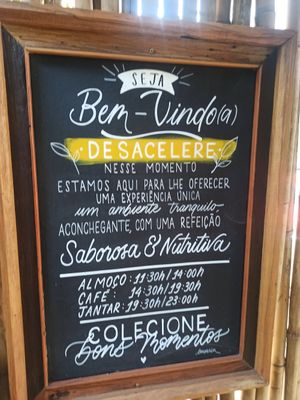 SEJA
Bem-Vindo(a)
DESACELERE
NESSE MOMENTO
ESTAMOS AQUI PARA LHE OFERECER
UMA EXPERIÊNCIA ÚNICA
um ambiente tranquilo
ACONCHEGANTE, COM UMA REFEIÇÃO
Saborosa & Nutritiva
ALMOÇO: 11:30h/14:00h
CAFÉ: 14:30h/19:30h
JANTAR: 19:30h/23:00h
COLECIONE
Bons Momentos